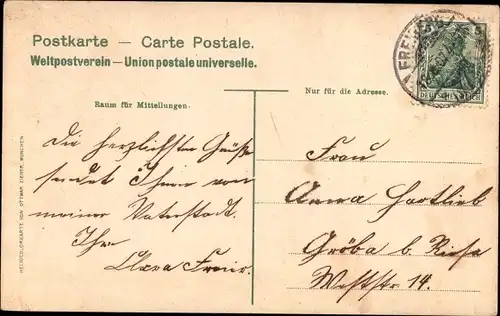 Postkarte — Carte Postale.
Weltpostverein — Union postale universelle.
Raum für Mitteilungen.
Nur für die Adresse.
DEUTSCHES REICH
HELIOCOLORKARTE VON OTTMAR ZIEHER, MÜNCHEN
Die herzlichsten Grüße
sendet Ihnen von
meiner Vaterstadt
Ihre
Clara
Frau
Anna Hartlieb
Gröba b. Riesa
Weststr. 14.